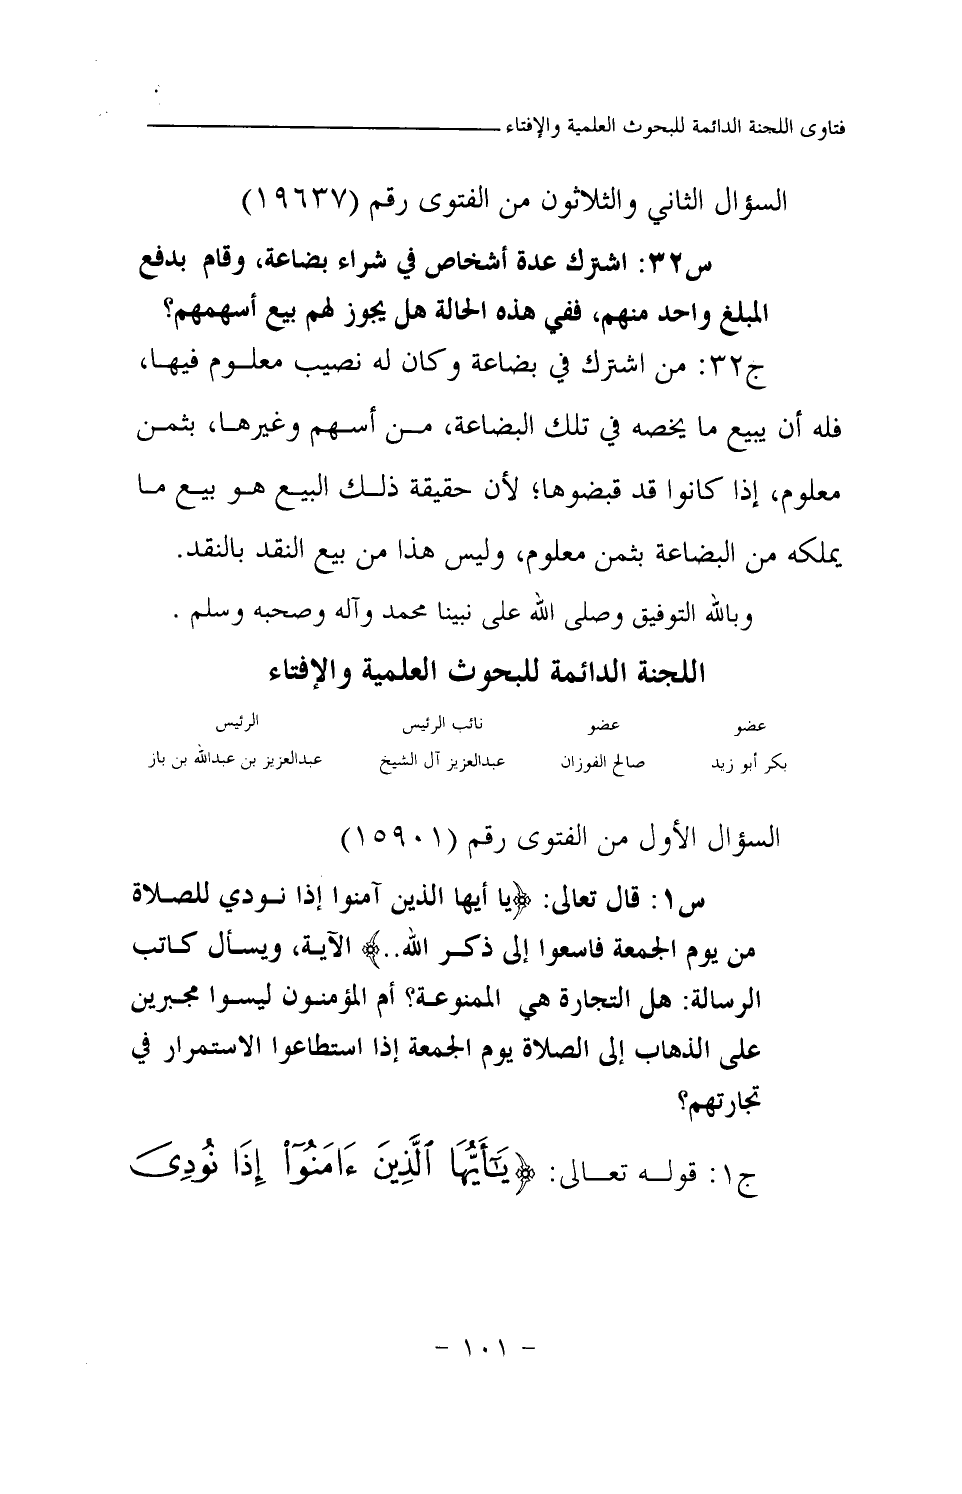 فتاوى اللجنة الدائمة للبحوث العلمية والإفتاء
السؤال الثاني والثلاثون من الفتوى رقم (١٩٦٣٧)
س٣٢: اشترك عدة أشخاص في شراء بضاعة، وقام بدفع
المبلغ واحد منهم، ففي هذه الحالة هل يجوز لهم بيع أسهمهم؟
ج٣٢: من اشترك في بضاعة وكان له نصيب معلوم فيها،
فله أن يبيع ما يخصه في تلك البضاعة، من أسهم وغيرها، بثمن
معلوم، إذا كانوا قد قبضوها؛ لأن حقيقة ذلك البيع هو بيع ما
يملكه من البضاعة بثمن معلوم، وليس هذا من بيع النقد بالنقد.
وبالله التوفيق وصلى الله على نبينا محمد وآله وصحبه وسلم .
اللجنة الدائمة للبحوث العلمية والإفتاء
عضو عضو نائب الرئيس الرئيس
بكر أبو زيد صالح الفوزان عبدالعزيز آل الشيخ عبدالعزيز بن عبدالله بن باز
السؤال الأول من الفتوى رقم (١٥٩٠١)
س١: قال تعالى: ﴿يا أيها الذين آمنوا إذا نودي للصلاة
من يوم الجمعة فاسعوا إلى ذكر الله..﴾ الآية، ويسأل كاتب
الرسالة: هل التجارة هي الممنوعة؟ أم المؤمنون ليسوا مجبرين
على الذهاب إلى الصلاة يوم الجمعة إذا استطاعوا الاستمرار في
تجارتهم؟
ج١: قوله تعالى: ﴿يَٰٓأَيُّهَا ٱلَّذِينَ ءَامَنُوٓاْ إِذَا نُودِىَ
- ١٠١ -